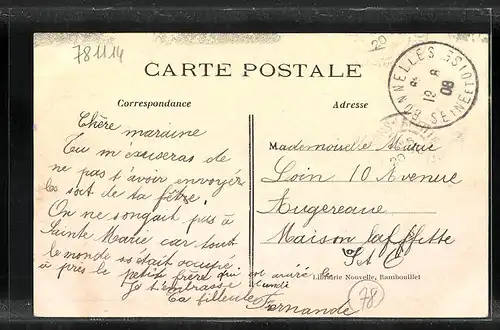 781114
20
CARTE POSTALE
Correspondance
Adresse
BONNELLES SEINE ET OISE
8
12
08
Chère maraine
Tu m'exuseras de
ne pas t'avoir envoyer
les de ta fête.
On ne songait pas à
Sainte Marie car tout
le monde était occupé
à près le petit frère qui est arrivé le lundi
Je t'embrasse
Ta filleule
Fernande
Mademoiselle Marie
Loin 10 Avenue
Augereaue
Maison Laffitte
S et O
Librairie Nouvelle, Rambouillet
78